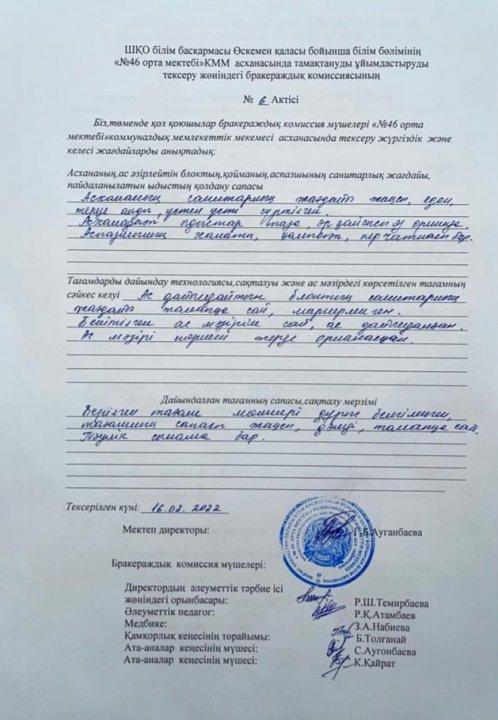 ШҚО білім басқармасы Өскемен қаласы бойынша білім бөлімінің
«№46 орта мектебі»КММ асханасында тамақтануды ұйымдастыруды
тексеру жөніндегі бракераждық комиссиясының
№ 6 Актісі
Біз,төменде қол қоюшылар бракераждық комиссия мүшелері «№46 орта
мектебі»коммуналдық мемлекеттік мекемесі асханасында тексеру жүргіздік және
келесі жағдайларды анықтадық:
Асхананың,ас әзірлейтін блоктың,қойманың,аспазшының санитарлық жағдайы,
пайдаланылатын ыдыстың қолдану сапасы
Асхананың санитарлық жағдайы жақсы, еден,
терезе алды үстел үсті сүртілген.
Асханадағы ыдыстар таза, әрдайым өз орнында.
Аспазшының халаты, қалпағы, перчаткасы бар.
Тағамдарды дайындау технологиясы,сақталуы және ас мәзірдегі көрсетілген тағамның
сәйкес келуі Ас дайындайтын блоктың санитарлық
жағдайы талапқа сай, маркерленген.
Бекітілген ас мәзіріне сай, ас дайындалған.
Ас мәзірі көрнекі жерде орналасқан.
Дайындалған тағамның сапасы,сақталу мерзімі
Берілген тағам мөлшері дұрыс белгіленген,
тағамның сапасы жақсы, дәмді, талапқа сай.
Тәулік сынама бар.
Тексерілген күні: 16.02.2022
Мектеп директоры: Г.Б.Ауганбаева
Бракераждық комиссия мүшелері:
Директордың әлеуметтік тәрбие ісі
жөніндегі орынбасары: Р.Ш.Темирбаева
Әлеуметтік педагог: Р.Қ.Атамбаев
Медбике: З.А.Набиева
Қамқорлық кеңесінің төрайымы: Б.Толғанай
Ата-аналар кеңесінің мүшесі: С.Аугонбаева
Ата-аналар кеңесінің мүшесі: К.Қайрат